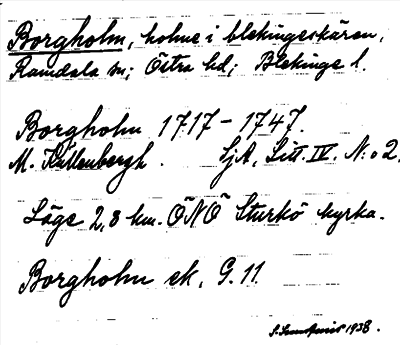 Borgholm, holme i blekingeskären,
Ramdala sn; Östra hd; Blekinge l.
Borgholm 1717-1747.
M. Källenbergh. SjA, Litt. IV. N:o 2.
Läge 2,8 km. ÖNÖ Sturkö kyrka.
Borgholm ek. G. 11.
1938.